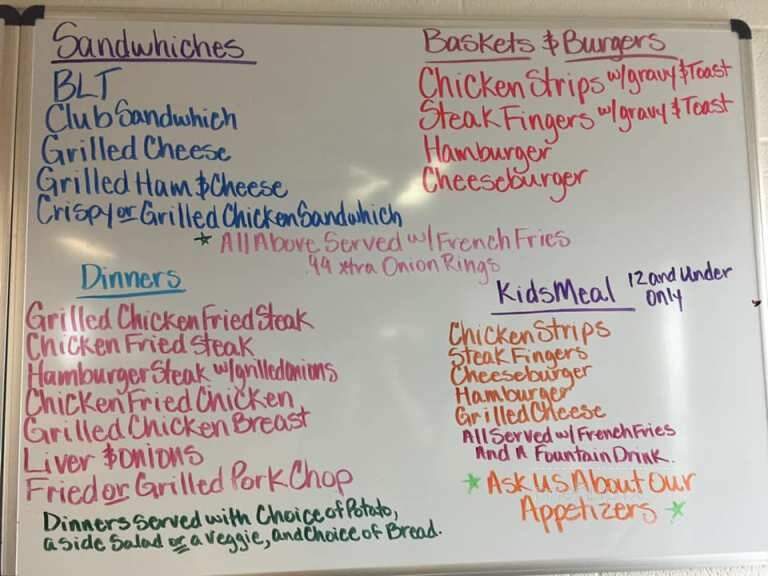 Sandwhiches
BLT
Club Sandwhich
Grilled Cheese
Grilled Ham & Cheese
Crispy or Grilled Chicken Sandwhich
Baskets & Burgers
Chicken Strips w/gravy & Toast
Steak Fingers w/gravy & Toast
Hamburger
Cheeseburger
* All Above Served w/ French Fries
.99 xtra Onion Rings
Dinners
Grilled Chicken Fried Steak
Chicken Fried Steak
Hamburger Steak w/grilled onions
Chicken Fried Chicken
Grilled Chicken Breast
Liver & Onions
Fried or Grilled Pork Chop
Dinners served with Choice of Potato,
a side Salad or a veggie, and Choice of Bread.
Kids Meal 12 and Under
only
Chicken Strips
Steak Fingers
Cheeseburger
Hamburger
Grilled Cheese
All Served w/ French Fries
And A Fountain Drink.
* Ask Us About Our
Appetizers *